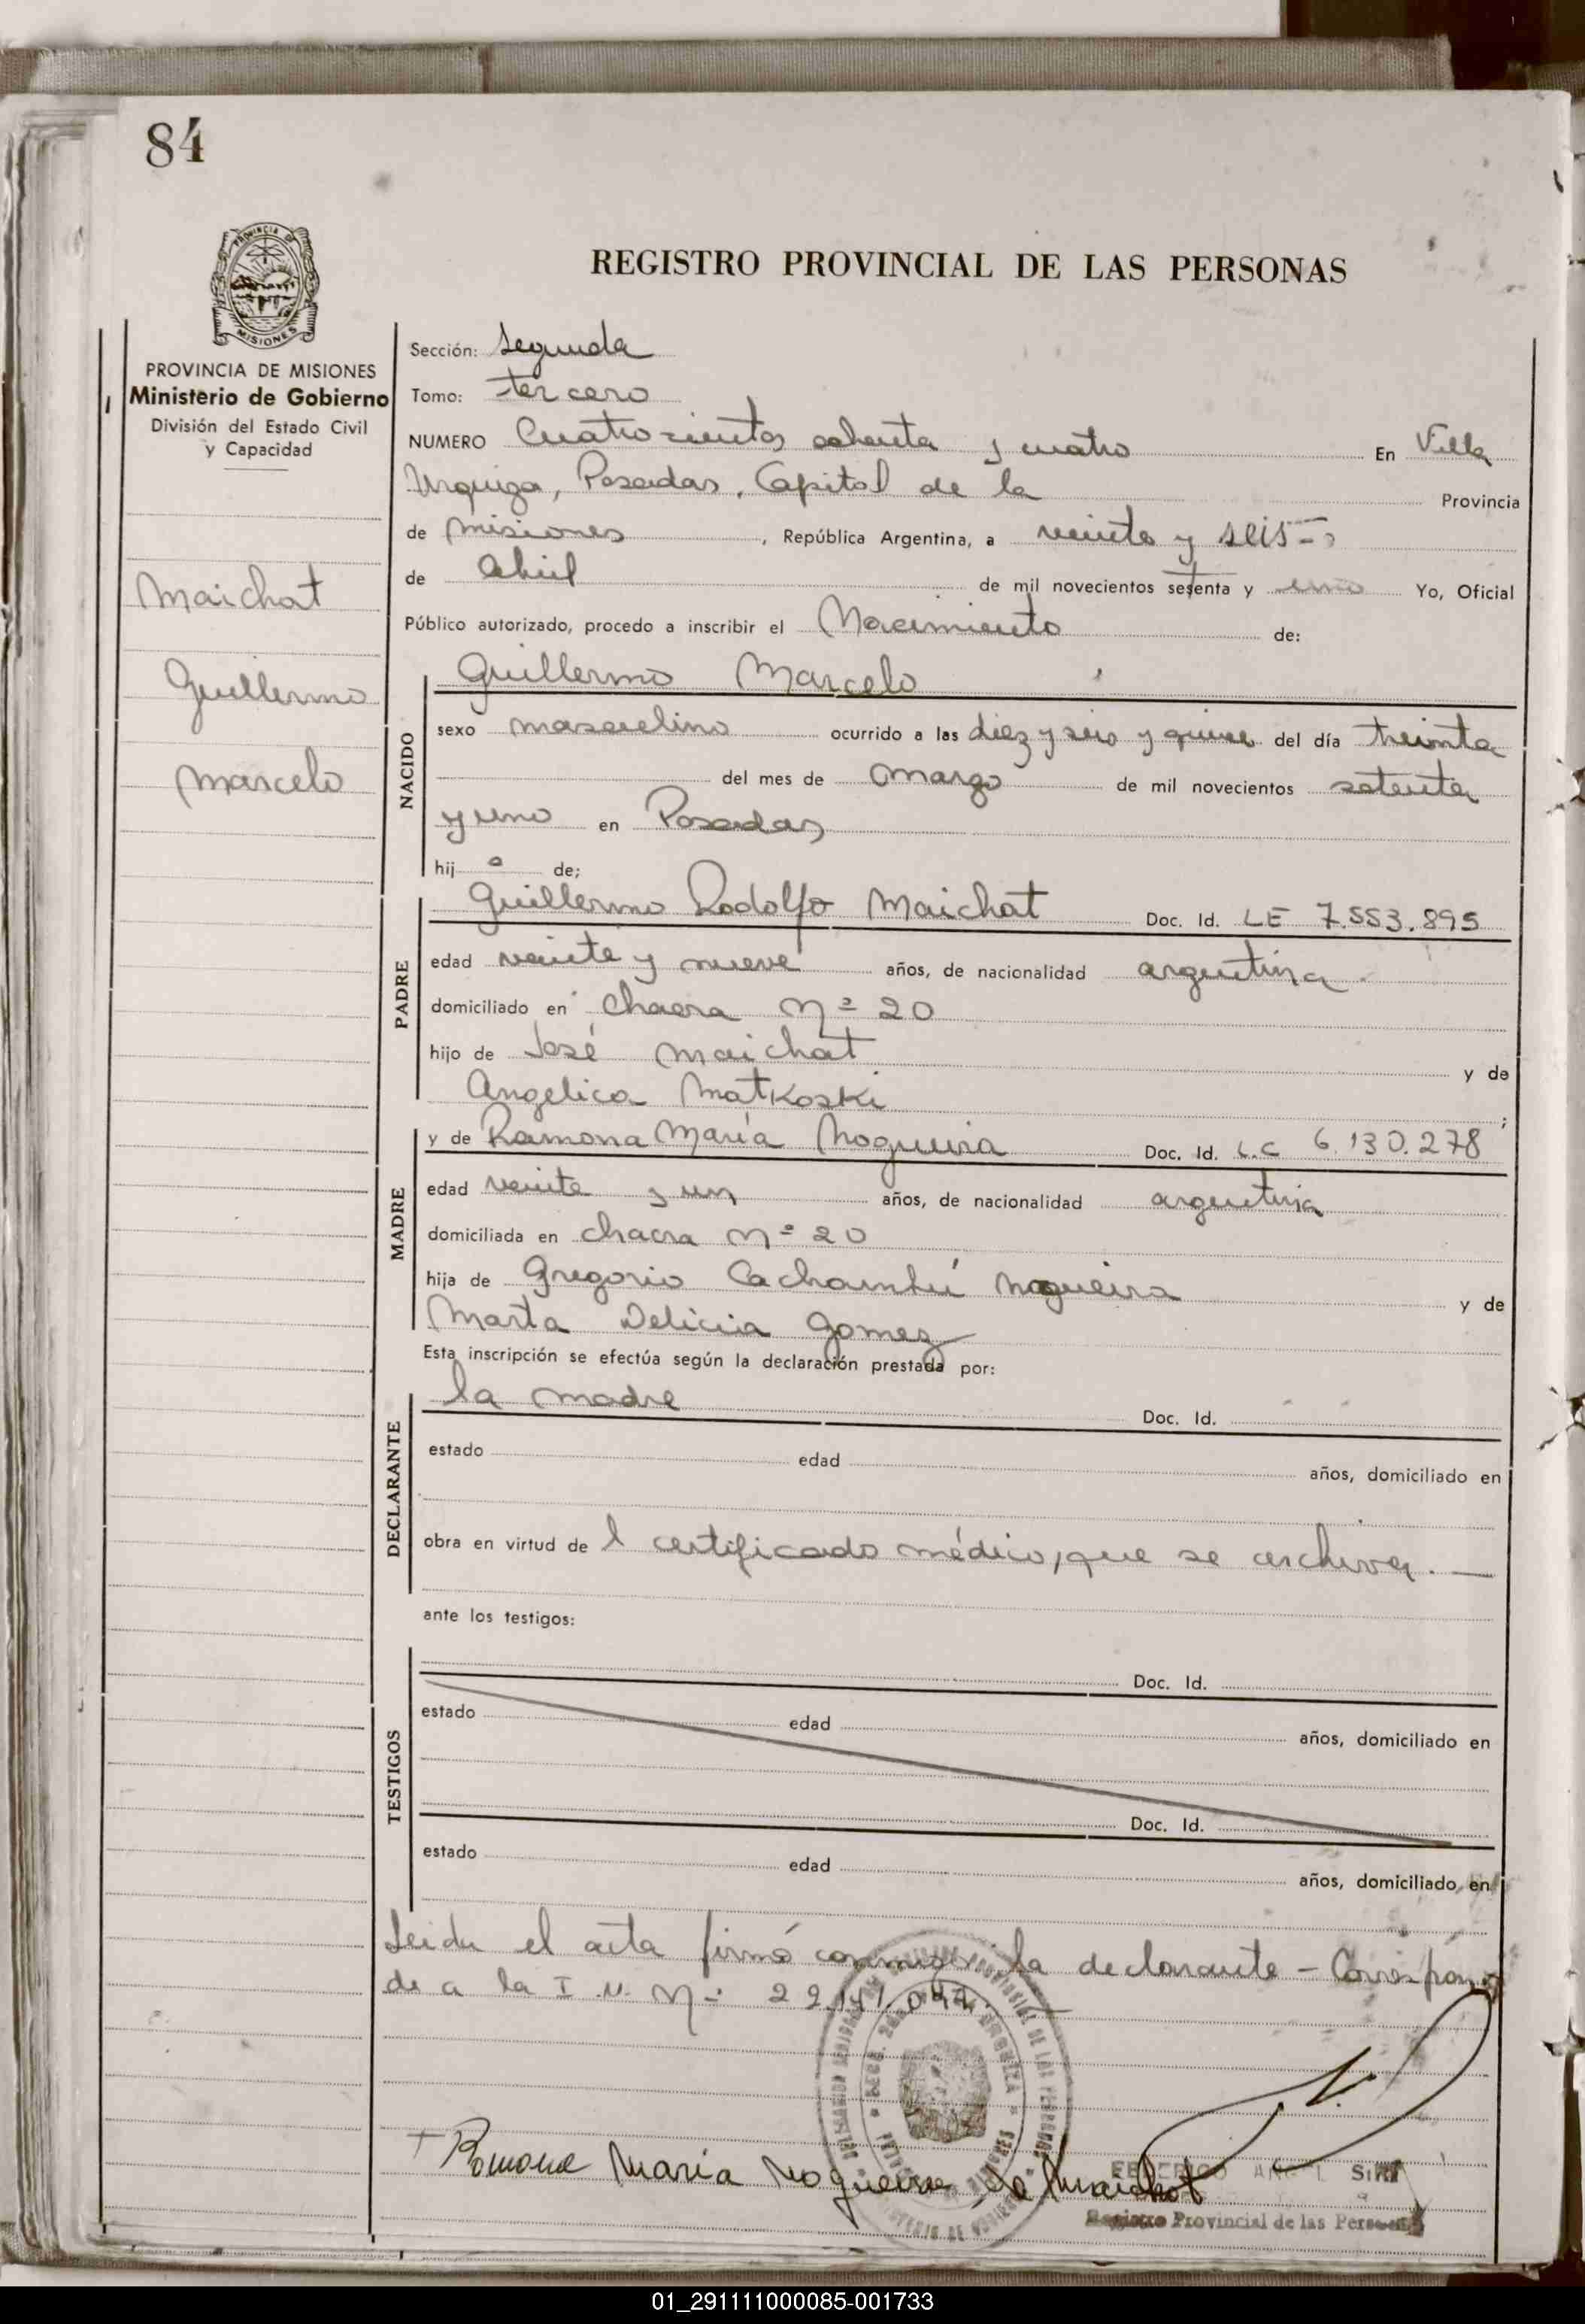 84
PROVINCIA DE MISIONES
Ministerio de Gobierno
División del Estado Civil
y Capacidad
Maichat
Guillermo
Marcelo
REGISTRO PROVINCIAL DE LAS PERSONAS
Sección: Segunda
Tomo: tercero
NUMERO Cuatrocientos ochenta y cuatro En Villa
Urquiza, Posadas, Capital de la Provincia
de Misiones, República Argentina, a veinte y seis
de Abril de mil novecientos setenta y uno Yo, Oficial
Público autorizado, procedo a inscribir el Nacimiento de:
NACIDO
Guillermo Marcelo
sexo masculino ocurrido a las diez y seis y quince del día treinta
del mes de Marzo de mil novecientos setenta
y uno en Posadas
hij o de;
PADRE
Guillermo Rodolfo Maichat Doc. Id. LE 7.553.895
edad veinte y nueve años, de nacionalidad argentina
domiciliado en chacra Nº 20
hijo de José Maichat y de
Angelica Matkoski;
MADRE
y de Ramona María Nogueira Doc. Id. L.C 6.130.278
edad veinte y un años, de nacionalidad argentina
domiciliada en chacra Nº 20
hija de Gregorio Nogueira y de
Marta Delicia Gomez
Esta inscripción se efectúa según la declaración prestada por:
DECLARANTE
la madre Doc. Id.
estado edad años, domiciliado en
obra en virtud de l certificado médico, que se archiva.—
ante los testigos:
TESTIGOS
Doc. Id.
estado edad años, domiciliado en
Doc. Id.
estado edad años, domiciliado en
Leida el acta firmó conmigo la declarante - Correspon
de a la I.N. Nº
Ramona Maria Nogueira de Maichat
Registro Provincial de las Personas
01_291111000085-001733